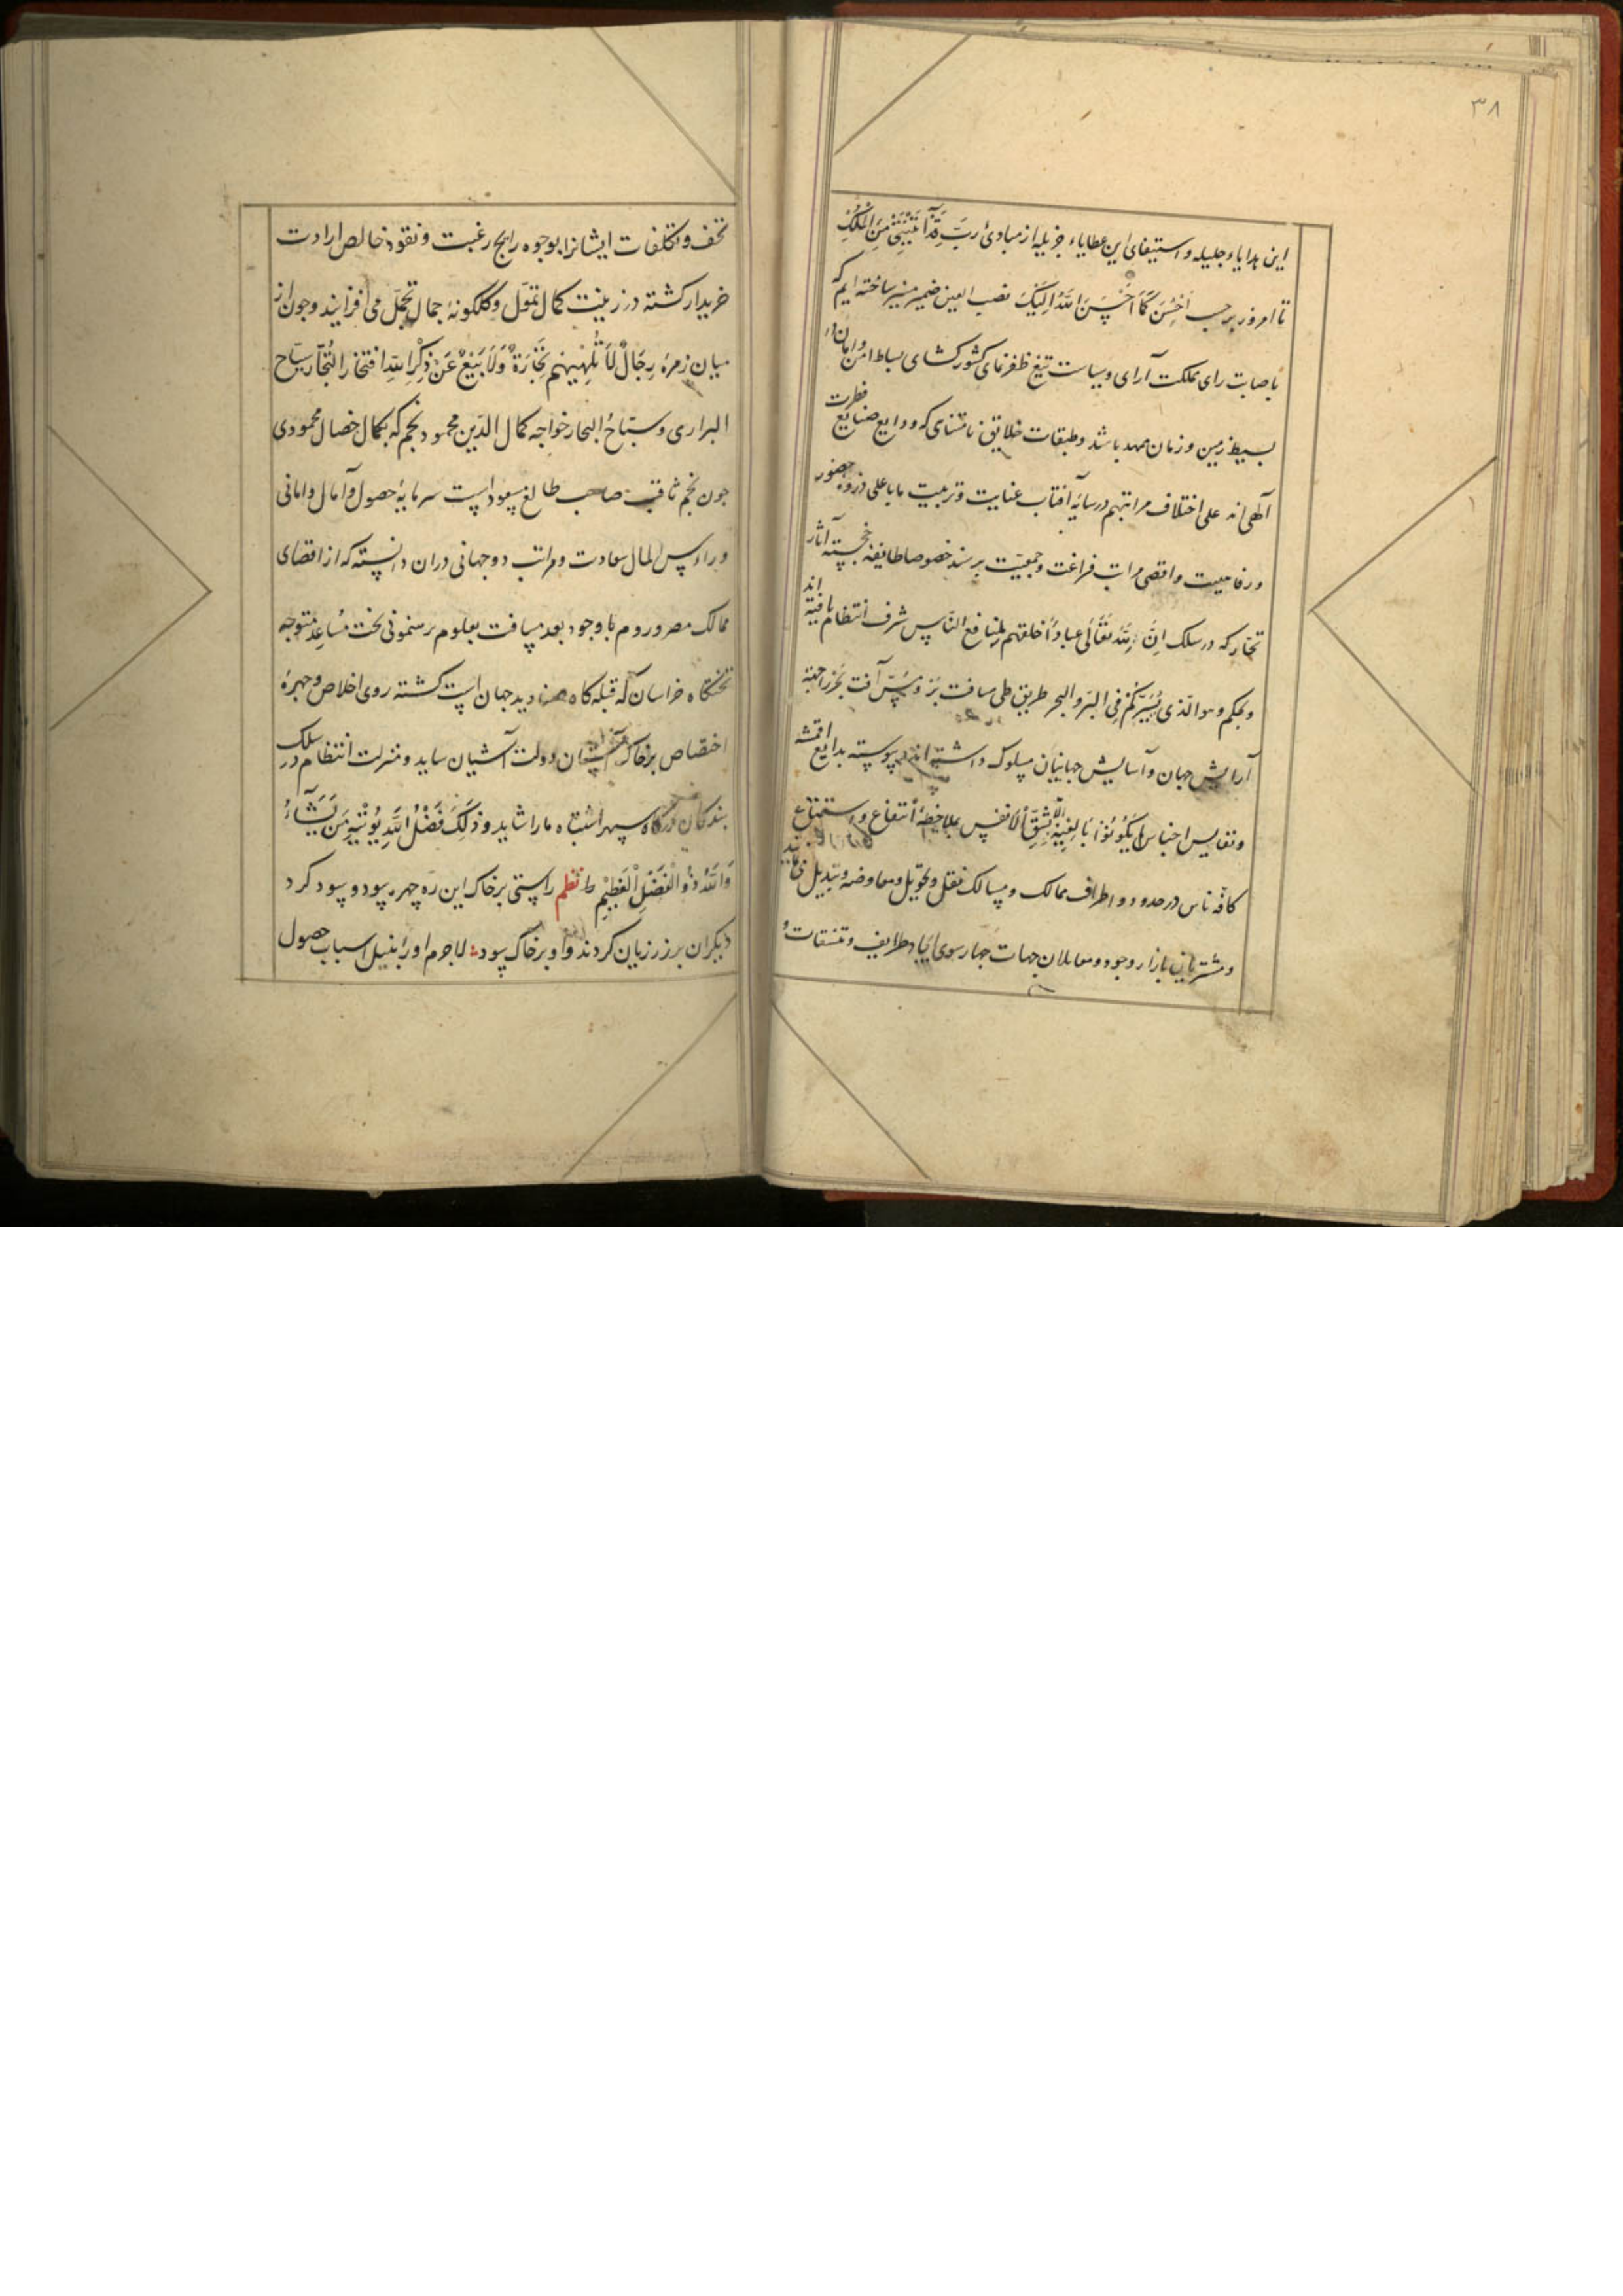 ۳۸
این هدایاء جلیله و استیفای این عطایاء جزیله از مبادئ رَبِّ قَدْ آتَیْتَنِی مِنَ الْمُلْکِ
تا امروز بر حسب اَحْسِنْ کَمَا اَحْسَنَ اللهُ اِلَیْکَ نصب العین ضمیر منیر ساخته ایم که
باصابت رای مملکت آرای و سیاست تیغ ظفرنمای کشورکشای بساط امن و امان در
بسیط زمین و زمان ممهد باشد و طبقات خلایق نامتناهی که ودایع صنایع فطرت
آلهی اند علی اختلاف مراتبهم در سایهٔ آفتاب عنایت و تربیت ما باعلی ذروهٔ حضور
و رفاهیت و اقصی مراتب فراغت و جمعیّت برسند خصوصا طایفهٔ خجسته آثار
تجّار که در سلک اِنَّ لِلّهِ تَعَالی عباداً خلقهم لمنافع الناس شرف انتظام یافته اند
و بحکم و هو الّذی یُسَیِّرُکُم فِی البرّ و البحر طریق طی مسافت برّ و آفت بحر را جهة
آرایش جهان و آسایش جهانیان مسلوک داشته اند و پیوسته بدایع اقمشه
و نفایس اجناس لَمْ یَکُونُوا بَالِغِیْهِ اِلَّا بِشِقِّ الْاَنْفُسِ بملاحظهٔ انتفاع و استمتاع
کافّه ناس در حدود و اطراف ممالک و مسالک نقل و تحویل و معاوضه و تبدیل می نمایند
و مشتریان بازار وجود و معاملان جهات چهارسوی ایجاد طرایف و تنسقات و
تحف و تکلفات ایشانرا بوجوه رایج رغبت و نقود خالص ارادت
خریدار کشته در زینت کمال تموّل و کلکونهٔ جمال تجمّل می افزایند و جون از
میان زمرهٔ رِجَالٌ لَا تُلْهِیْهِمْ تِجَارَةٌ وَلَا بَیْعٌ عَنْ ذِکْرِ اللهِ افتخار التُجّار سیّاح
البراری و سبّاحُ البحار خواجه کمال الدّین محمود نجم که بکمال خصال محمودی
جون نجم ثاقب صاحب طالع مسعود است سرمایهٔ حصول آمال و امانی
و راس المال سعادت و مراتب دوجهانی دران دانسته که از اقصای
ممالک مصر و روم با وجود بعد مسافت بعلوم برهنمونی بخت مُساعِد متوجه
تختکاه خراسان که قبله کاه صنادید جهان است کشته روی اخلاص و جهرهٔ
اختصاص بر خاک آستان دولت آشیان ساید و منزلت انتظام در سلک
بندکان درکاه سپهر اشتباه ما را شاید و ذلِکَ فَضْلُ اللهِ یُوْتِیْهِ مَنْ یَشَآءُ
وَاللهُ ذُو الْفَضْلِ الْعَظِیْمِ نظم راستی بر خاک این ره چهره سود و سود کرد
دیکران بر زر زیان کردند و او بر خاک سود لاجرم او را بنیل اسباب حصول